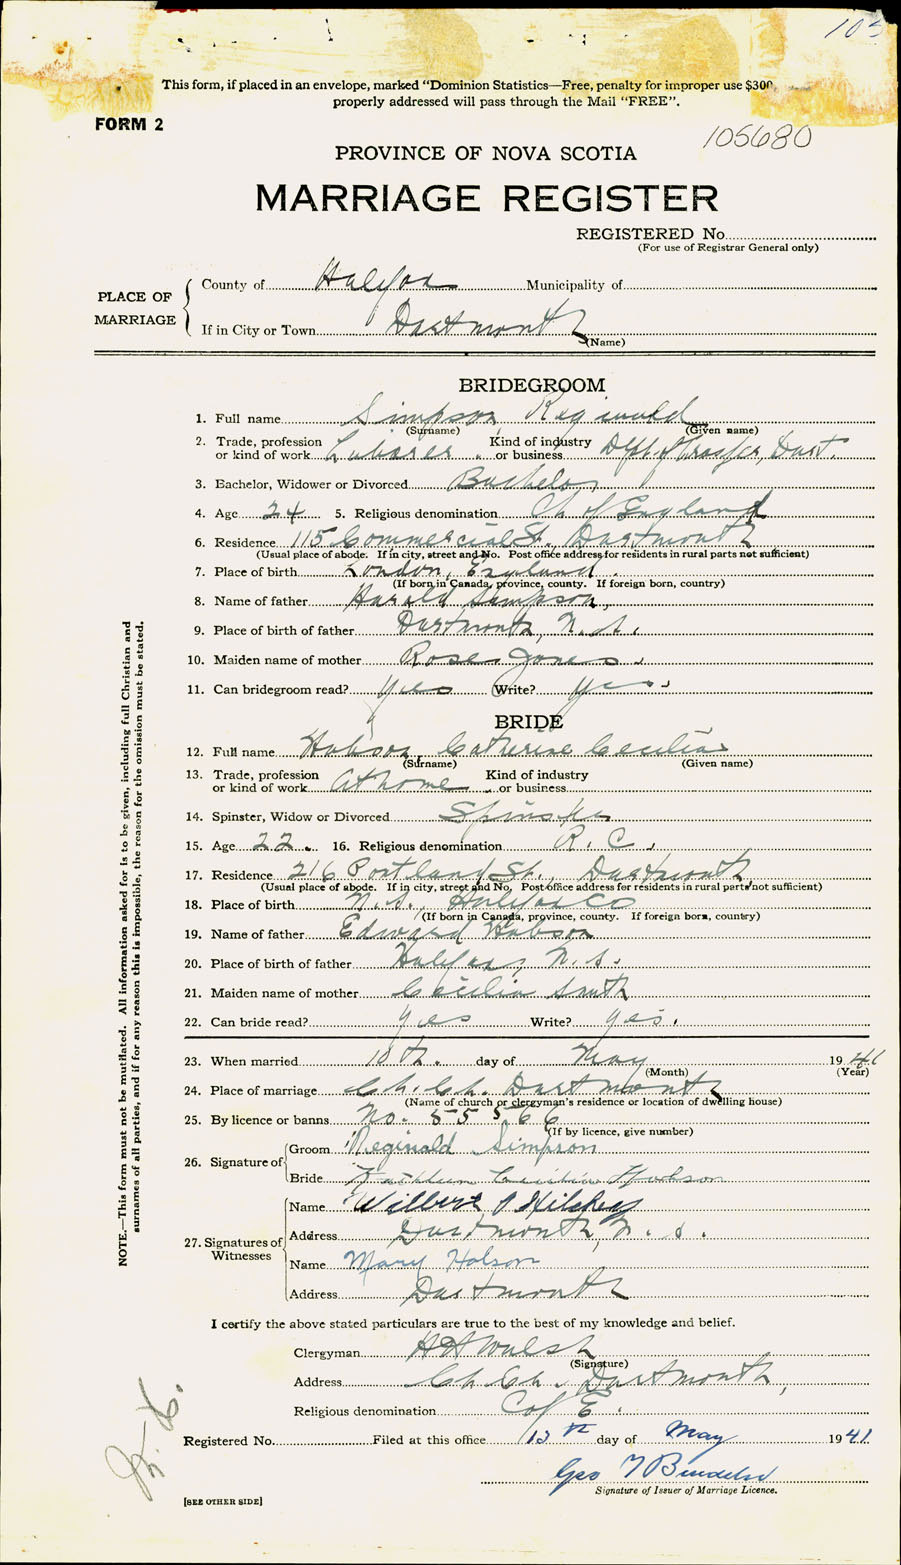 103
This form, if placed in an envelope, marked "Dominion Statistics—Free, penalty for improper use $300,
properly addressed will pass through the Mail "FREE".
FORM 2
105680
PROVINCE OF NOVA SCOTIA
MARRIAGE REGISTER
REGISTERED No.
(For use of Registrar General only)
PLACE OF MARRIAGE
County of Halifax Municipality of
If in City or Town Dartmouth
(Name)
BRIDEGROOM
1. Full name Simpson, Reginald
(Surname) (Given name)
2. Trade, profession or kind of work Laborer. Kind of industry or business Dept. of Transfer, Dart.
3. Bachelor, Widower or Divorced Bachelor
4. Age 24 5. Religious denomination Ch of England
6. Residence 115 Commercial St. Dartmouth
(Usual place of abode. If in city, street and No. Post office address for residents in rural parts not sufficient)
7. Place of birth London, England.
(If born in Canada, province, county. If foreign born, country)
8. Name of father Harold Simpson,
9. Place of birth of father Dartmouth, N.S.
10. Maiden name of mother Rose Jones.
11. Can bridegroom read? yes Write? yes.
BRIDE
12. Full name Hobson, Catherine Cecilia
(Surname) (Given name)
13. Trade, profession or kind of work At home. Kind of industry or business
14. Spinster, Widow or Divorced Spinster
15. Age 22. 16. Religious denomination R. C.
17. Residence 216 Portland St., Dartmouth
(Usual place of abode. If in city, street and No. Post office address for residents in rural parts not sufficient)
18. Place of birth N.S., Halifax Co
(If born in Canada, province, county. If foreign born, country)
19. Name of father Edward Hobson
20. Place of birth of father Halifax, N.S.
21. Maiden name of mother Cecilia Smith
22. Can bride read? yes Write? yes.
23. When married 10th. day of May 1941
(Month) (Year)
24. Place of marriage Ch. Ch. Dartmouth
(Name of church or clergyman's residence or location of dwelling house)
25. By licence or banns No. 55566
(If by licence, give number)
26. Signature of
Groom Reginald Simpson
Bride Kathleen Cecilia Hobson
27. Signatures of Witnesses
Name Wilbert
Address Dartmouth, N.S.
Name Mary Hobson
Address Dartmouth
I certify the above stated particulars are true to the best of my knowledge and belief.
Clergyman H H Walsh
(Signature)
Address Ch. Ch. Dartmouth,
Religious denomination C of E.
Registered No. Filed at this office 13th day of May 1941
Geo
Signature of Issuer of Marriage Licence.
[SEE OTHER SIDE]
NOTE.—This form must not be mutilated. All information asked for is to be given, including full Christian and
surnames of all parties, and if for any reason this is impossible, the reason for the omission must be stated.